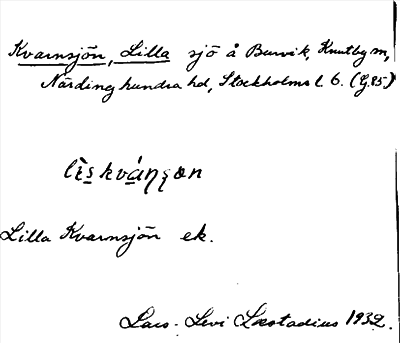 Kvarnsjön, Lilla sjö å Burvik, Knutby sn,
Närdinghundra hd, Stockholms l. 6. (G.85)
Lilla Kvarnsjön ek.
Lars-Levi Læstadius 1932.